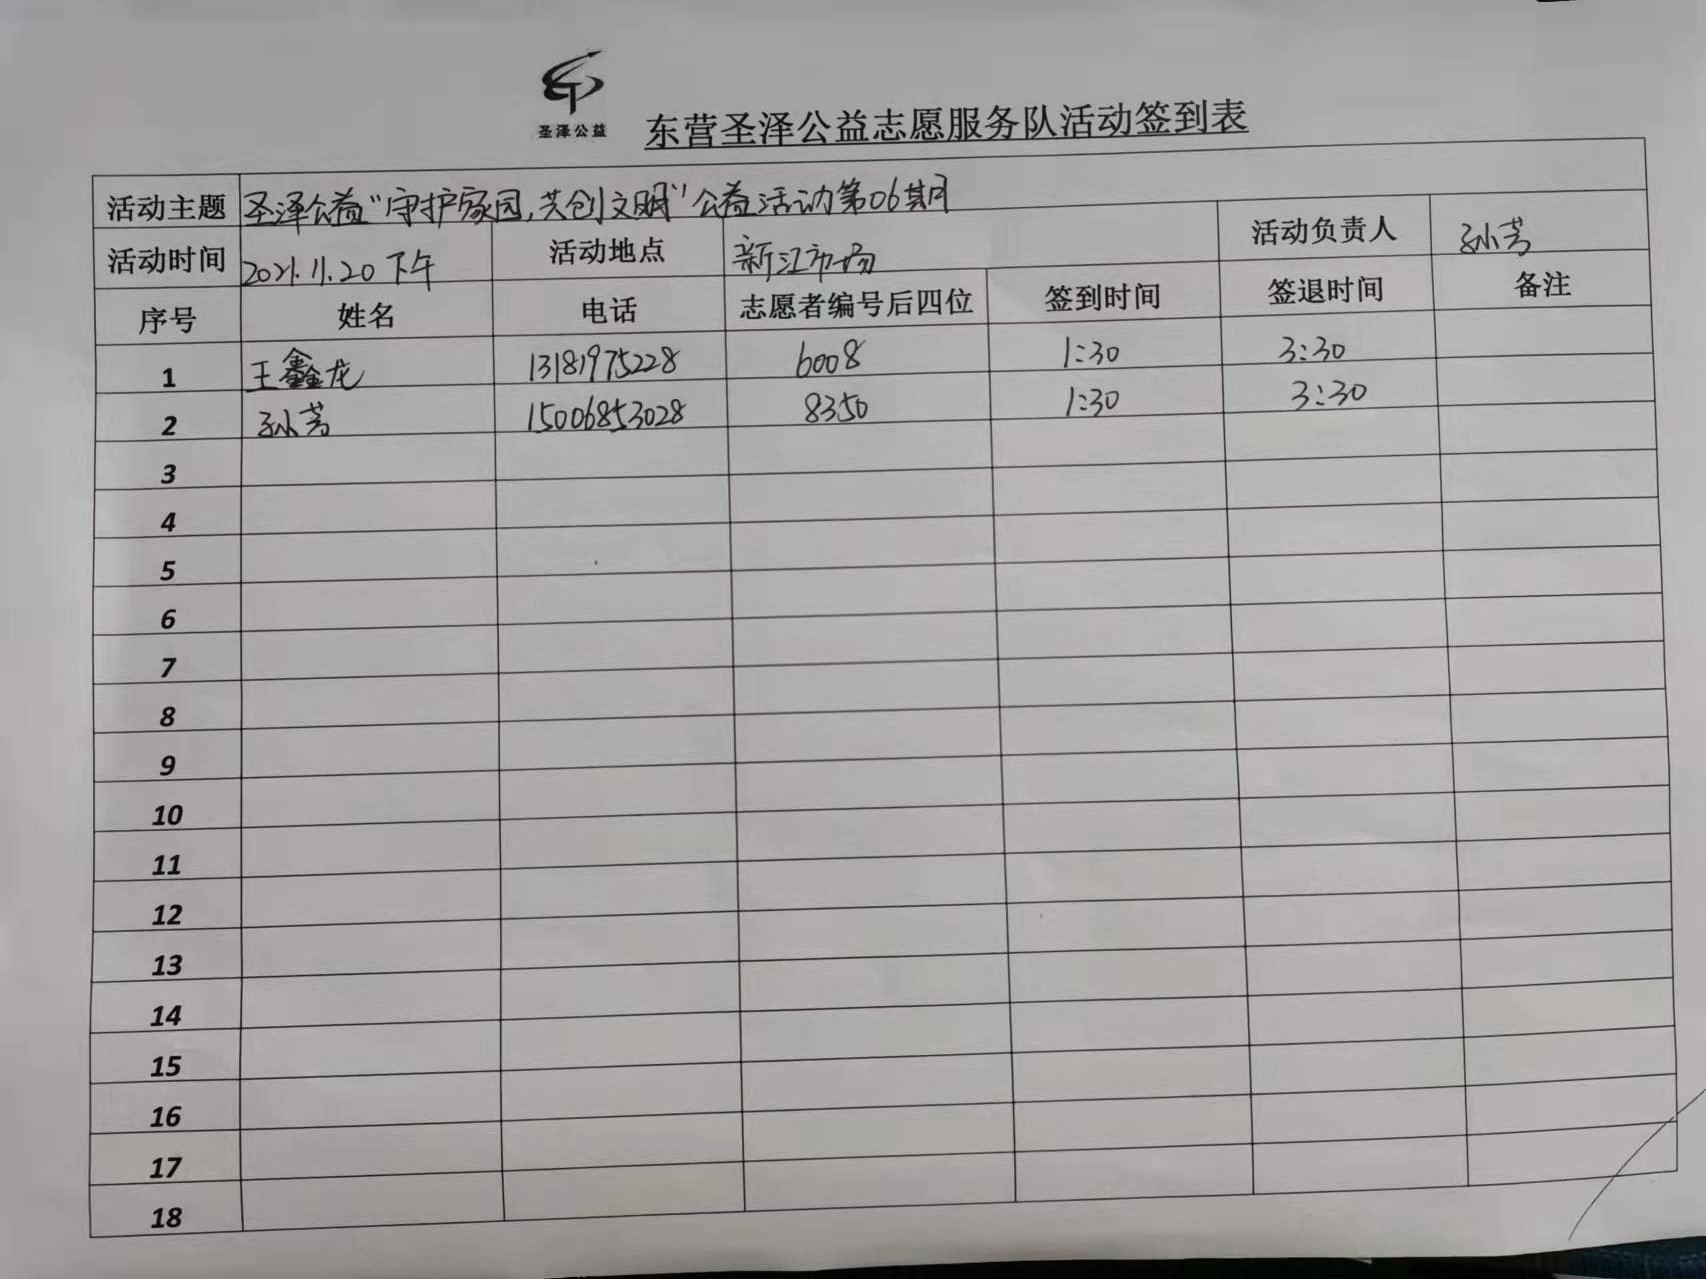 圣泽公益
东营圣泽公益志愿服务队活动签到表
活动主题 圣泽公益“守护家园,共创文明”公益活动第06期
活动时间 2021.11.20下午 活动地点 新江市场 活动负责人 孙芳
序号 姓名 电话 志愿者编号后四位 签到时间 签退时间 备注
1 王鑫龙 13181975228 6008 1:30 3:30
2 孙芳 15006853028 8350 1:30 3:30
3
4
5
6
7
8
9
10
11
12
13
14
15
16
17
18